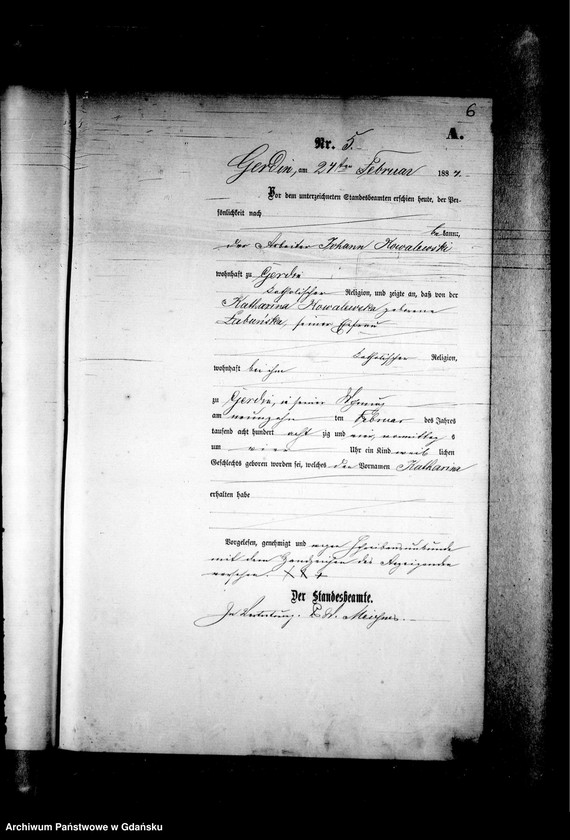 6
A.
Nr. 5.
Gerdin, am 24ten Februar 188
Vor dem unterzeichneten Standesbeamten erschien heute, der Per-
sönlichkeit nach
be kannt,
der Arbeiter Johann Kowalewski
wohnhaft zu Gerdin
katholischer Religion, und zeigte an, daß von der
Katharina Kowalewska geborene
Labunska, seiner Ehefrau
katholischer Religion,
wohnhaft bei ihm
zu Gerdin, in seiner Wohnung
am neunzehn ten Februar des Jahres
tausend acht hundert acht zig und vier, vormittag s
um vier Uhr ein Kind weib lichen
Geschlechts geboren worden sei, welches den Vornamen Katharina
erhalten habe
Vorgelesen, genehmigt und wegen Schreibensunkunde
mit dem Handzeichen des Anzeigenden
versehen. XXX
Der Standesbeamte.
In Vertretung.
Archiwum Państwowe w Gdańsku